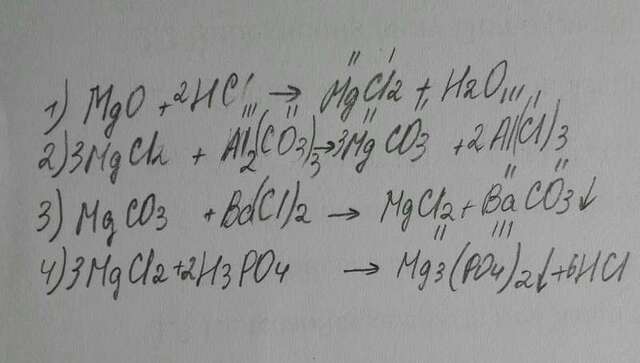 1) MgO + 2HCl → MgCl2 + H2O
2) 3MgCl2 + Al2(CO3)3 → 3MgCO3 + 2Al(Cl)3
3) MgCO3 + Ba(Cl)2 → MgCl2 + BaCO3↓
4) 3MgCl2 + 2H3PO4 → Mg3(PO4)2↓ + 6HCl